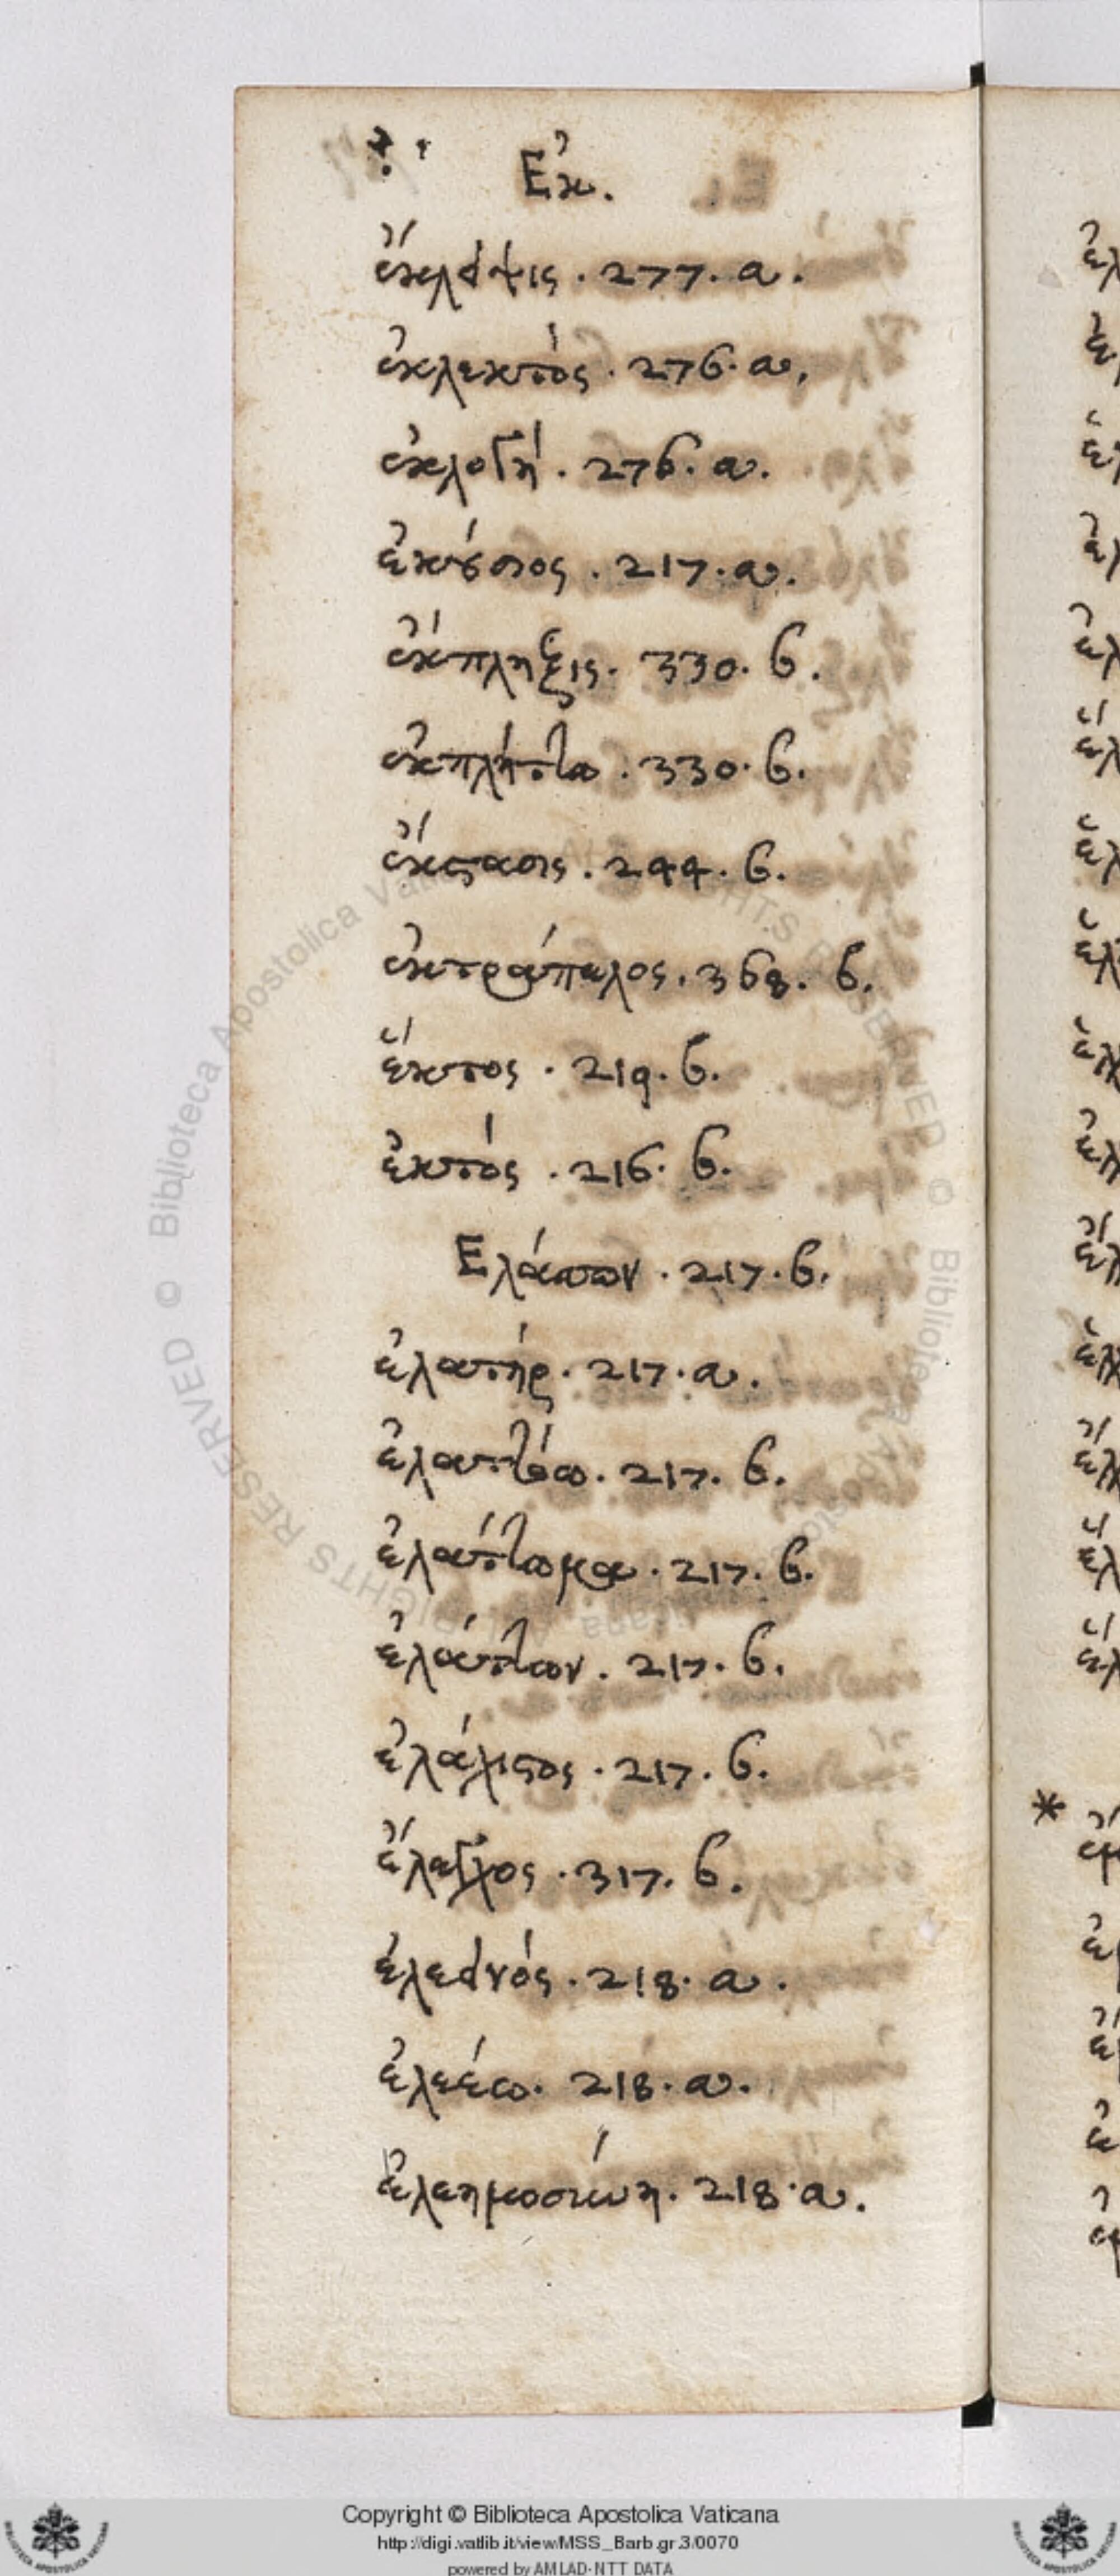 Ἐκ.
ἔκλειψις . 277. a.
ἐκλεκτός . 276. a.
ἐκλογή . 276. a.
ἐκούσιος . 217. a.
ἔκπληξις . 330. b.
ἐκπλήττω . 330. b.
ἔκστασις . 244. b.
ἐκτράπελος . 368. b.
ἕκτος . 219. b.
ἐκτός . 216. b.
Ελάσσων . 217. b.
ἐλατήρ . 217. a.
ἐλαττόω . 217. b.
ἐλάττωμα . 217. b.
ἐλάττων . 217. b.
ἐλάχιστος . 217. b.
ἔλεγχος . 317. b.
ἐλεεινός . 218. a.
ἐλεέω . 218. a.
ἐλεημοσύνη . 218. a.
Copyright © Biblioteca Apostolica Vaticana
http://digi.vatlib.it/view/MSS_Barb.gr.3/0070
powered by AMLAD-NTT DATA